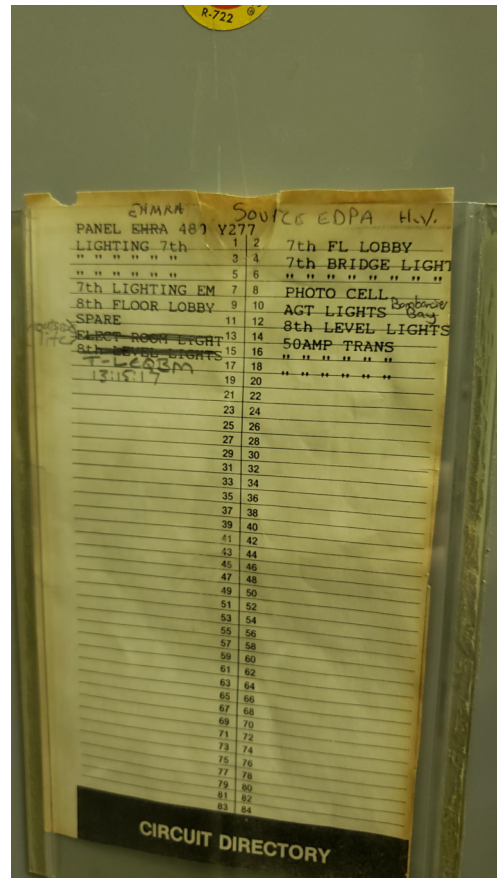 R-722
EHMRA SOURCE EDPA H.V.
PANEL EHRA 480 Y277
LIGHTING 7th 1 2 7th FL LOBBY
" " " " " 3 4 7th BRIDGE LIGHT
" " " " " 5 6 " " " " " " " "
7th LIGHTING EM 7 8 PHOTO CELL
8th FLOOR LOBBY 9 10 AGT LIGHTS Bombardier Bay
SPARE 11 12 8th LEVEL LIGHTS
ELECT ROOM LIGHT 13 14 50AMP TRANS
8th LEVEL LIGHTS 15 16 " " " " " "
T-LCQBM 17 18 " " " " " "
13:15:17 19 20
21 22
23 24
25 26
27 28
29 30
31 32
33 34
35 36
37 38
39 40
41 42
43 44
45 46
47 48
49 50
51 52
53 54
55 56
57 58
59 60
61 62
63 64
65 66
67 68
69 70
71 72
73 74
75 76
77 78
79 80
81 82
83 84
CIRCUIT DIRECTORY